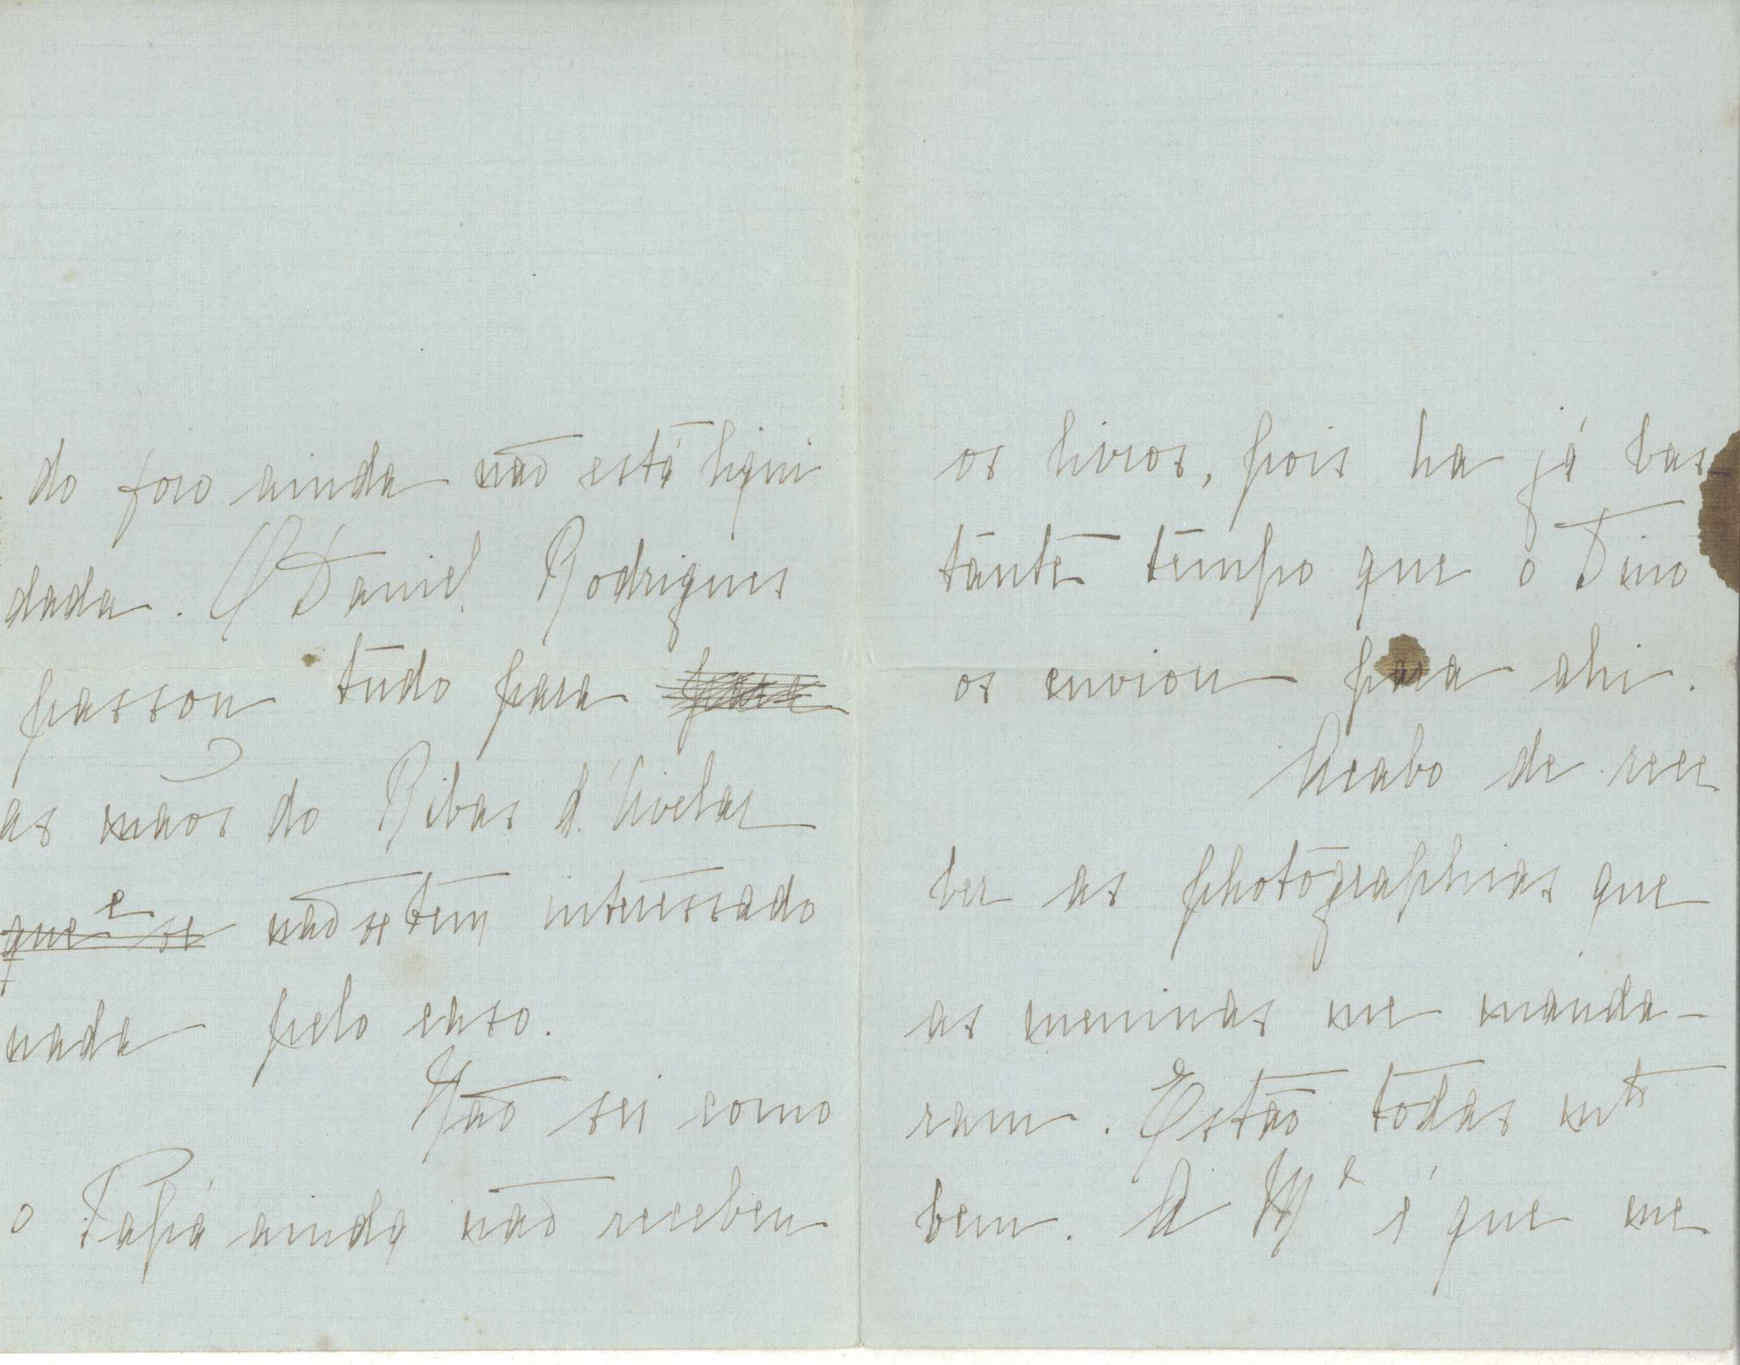 do foro ainda não está liqui
dada. O Daniel Rodrigues
passou tudo para para
as mãos do Ribas d'Avelar
que e se não se tem interessado
nada pelo caso.
Não sei como
o Papá ainda não recebeu
os livros, pois ha já bas-
tante tempo que o Tino
os enviou para ahi.
Acabo de rece
ber as photographias que
as meninas me manda-
ram. Estão todas mto
bem. A Ma é que me